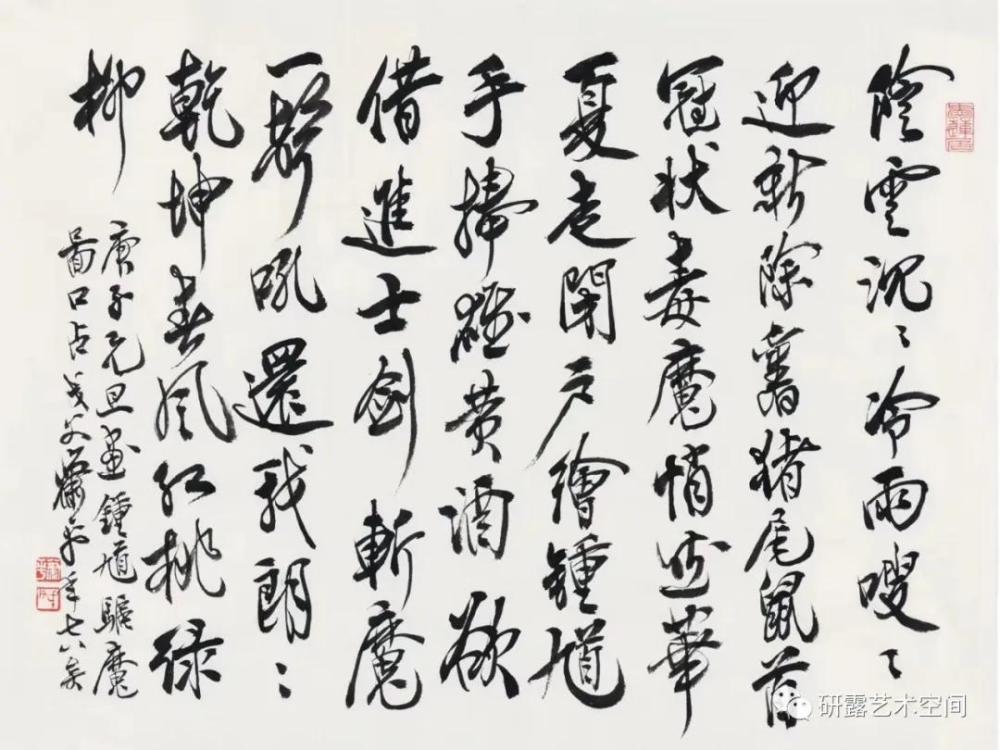 陰雲沉〻冷雨嗖〻
迎新除舊猪尾鼠首
冠狀毒魔悄出華
夏走閉户繪鍾馗
手捧雄黄酒欲
借進士劍斬魔
一聲吼還我朗〻
乾坤春風紅桃緑
柳
庚子元旦畫鍾馗驅魔
圖口占戈父蕭平年七八矣
研露艺术空间